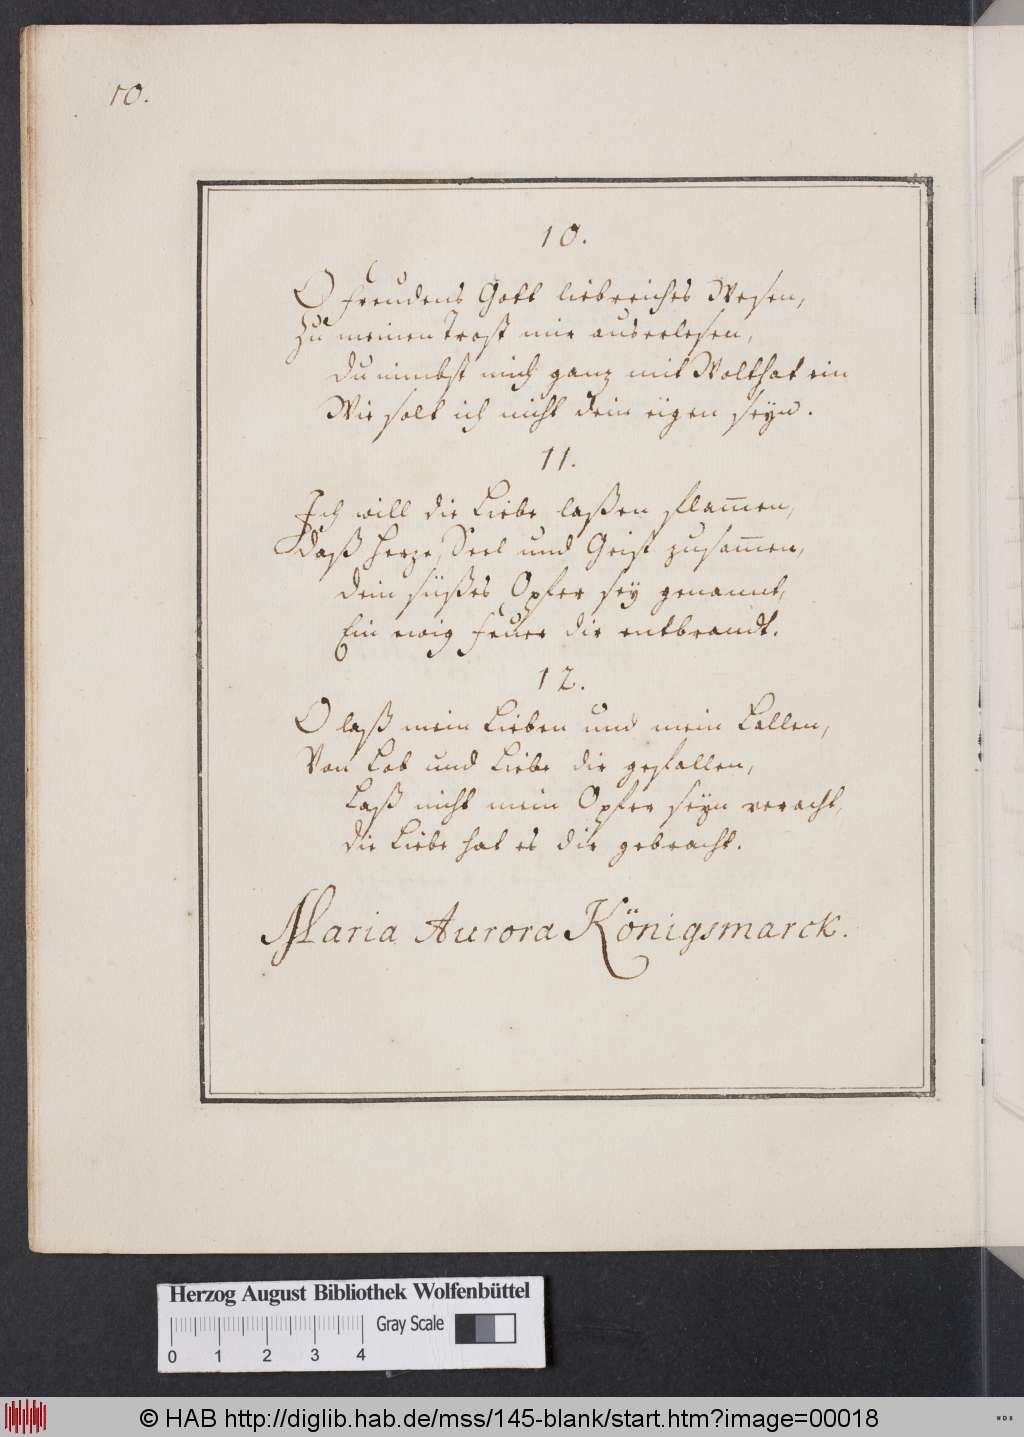 10.
10.
O freudens Gott liebreiches Wesen,
Zu meinen Trost mir auserlesen,
du nimbst mich ganz mit Wolthat ein
Wie solt ich nicht dein eigen seyn.
11.
Ich will die Liebe laßen flam̅en,
daß Herze, Seel und Geist zusam̅en,
dein süßes Opfer sey genannt,
Ein ewig Feuer dir entbrandt.
12.
O laß mein Lieben und mein Lallen,
Von Lob und Liebe dir gefallen,
Laß nicht mein Opfer seyn veracht,
die Liebe hat es dir gebracht.
Maria Aurora Königsmarck.
Herzog August Bibliothek Wolfenbüttel
Gray Scale
0 1 2 3 4
© HAB http://diglib.hab.de/mss/145-blank/start.htm?image=00018